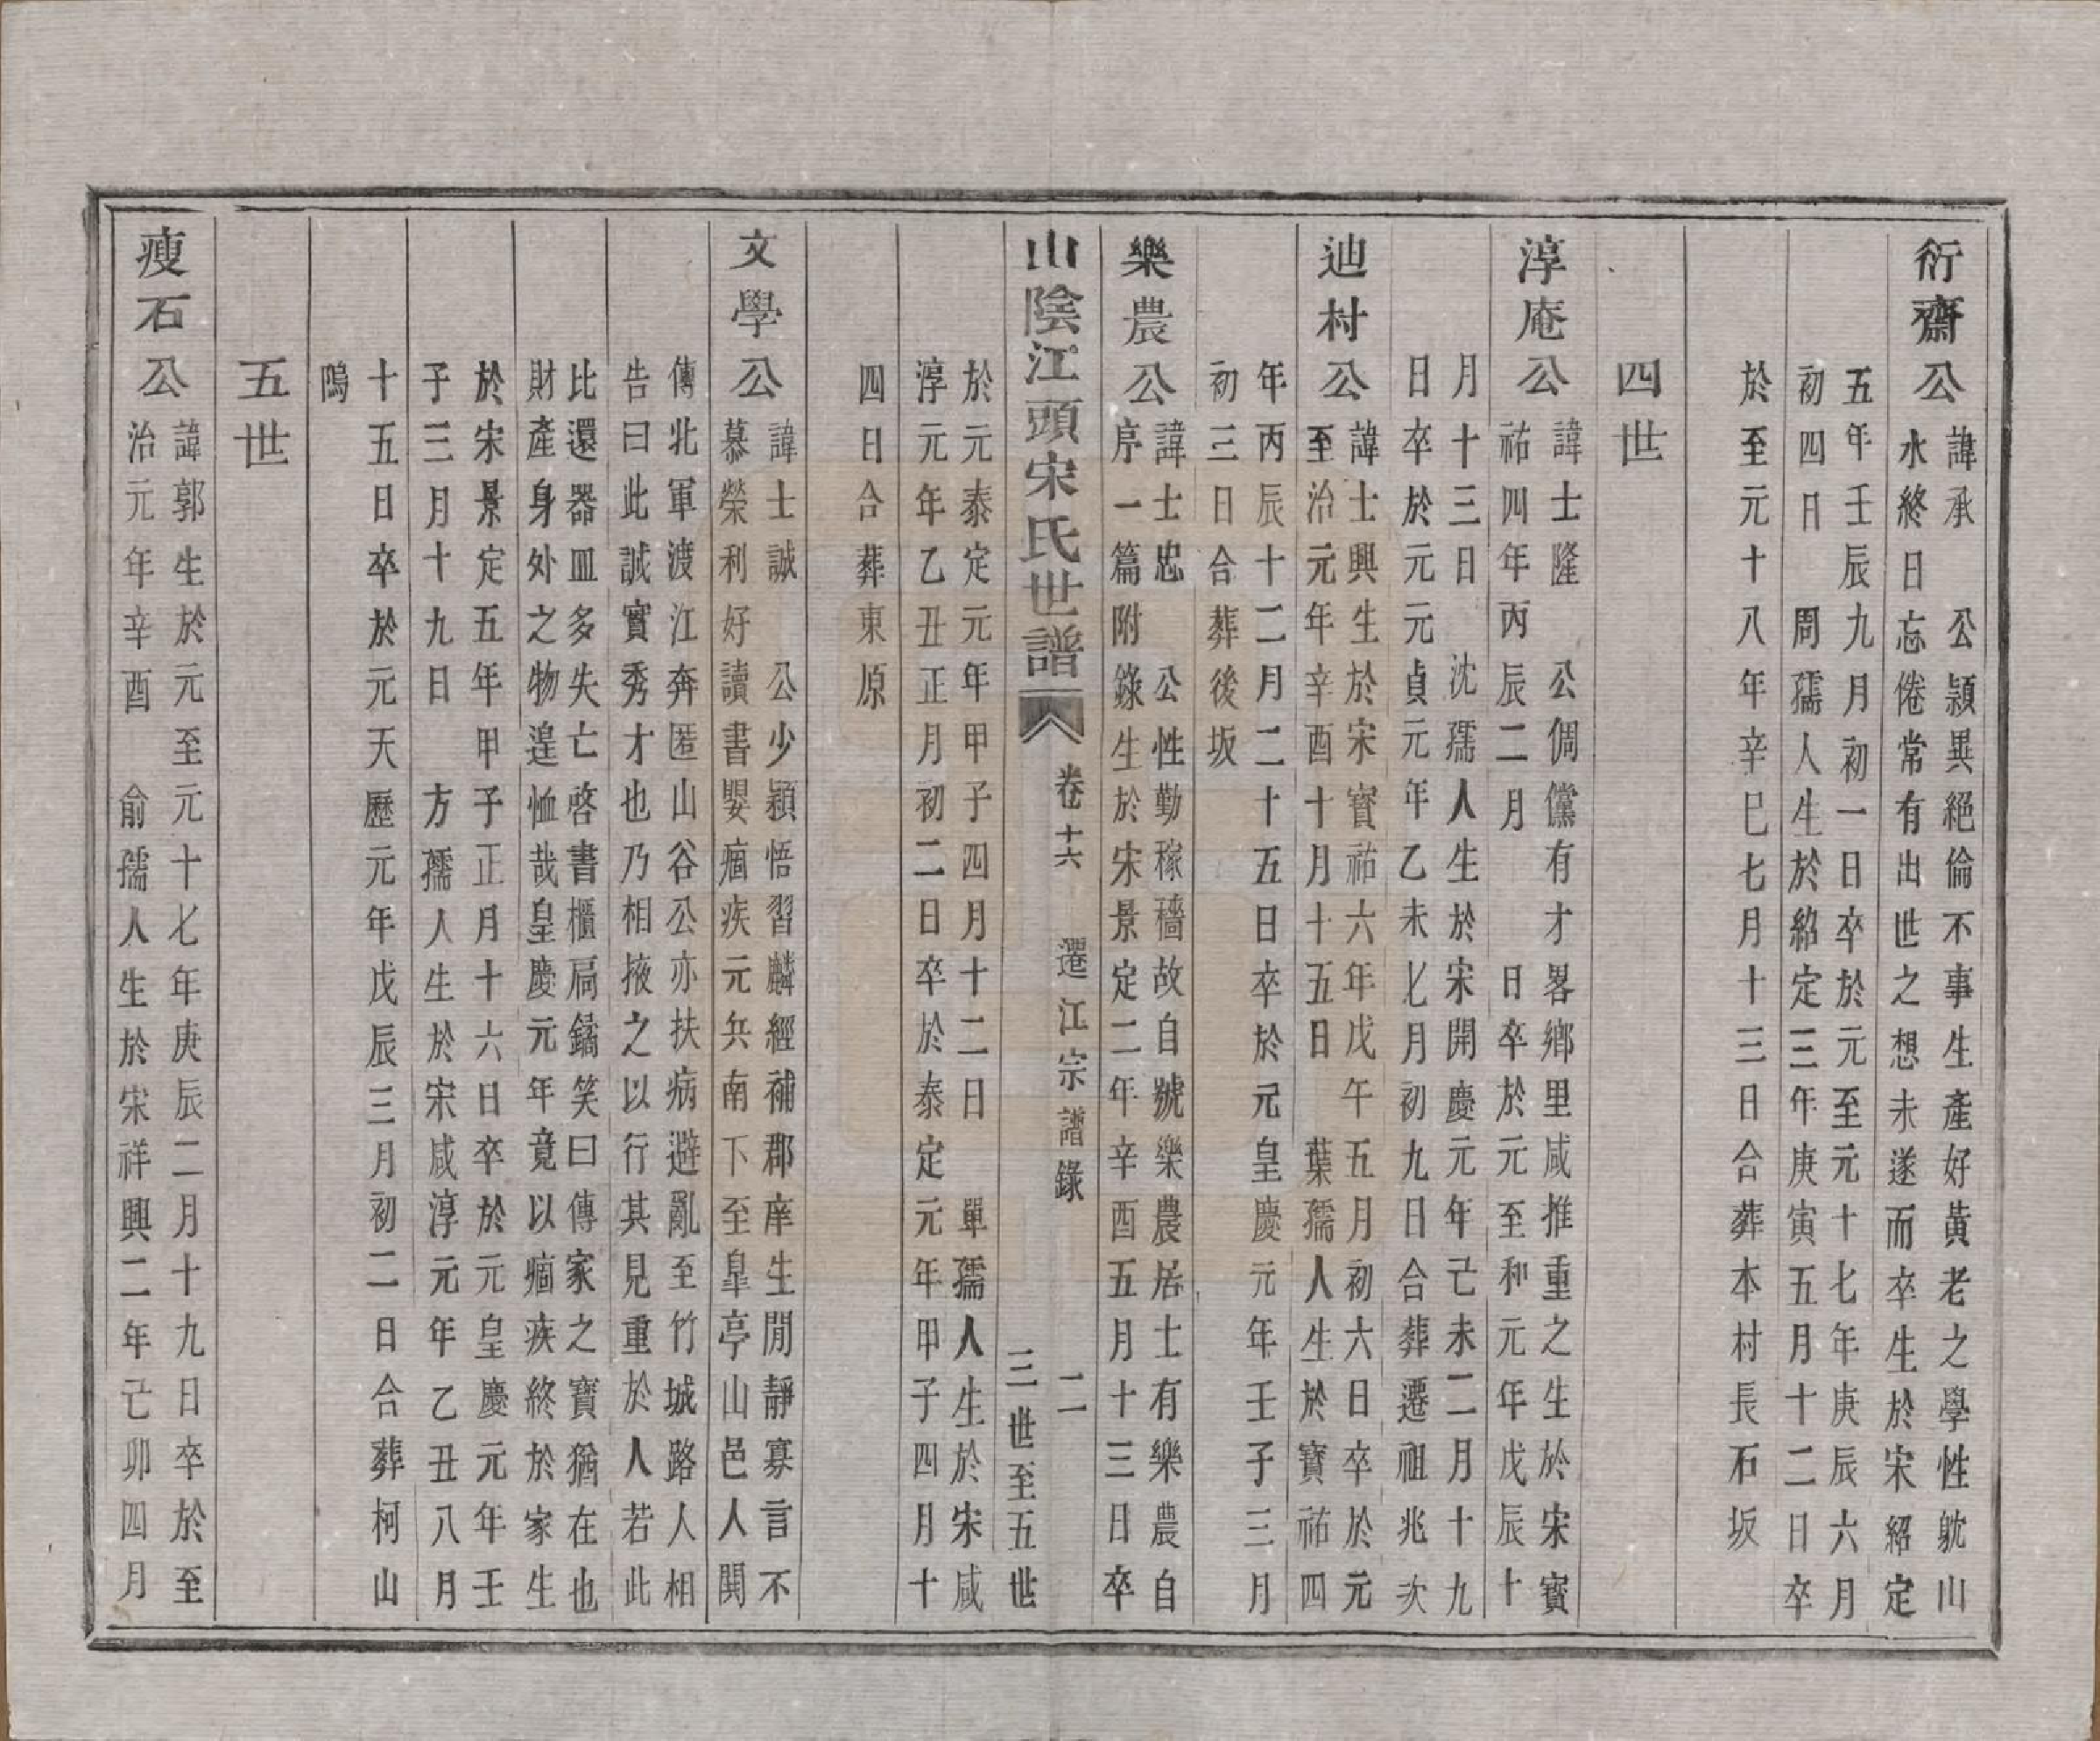 衍齋公
諱承　公頴異絕倫不事生產好黃老之學性躭山
水終日忘倦常有出世之想未遂而卒生於宋紹定
五年壬辰九月初一日卒於元至元十七年庚辰六月
初四日　周孺人生於紹定三年庚寅五月十二日卒
於至元十八年辛巳七月十三日合葬本村長石坂
四世
淳庵公
諱士隆　公倜儻有才畧鄉里咸推重之生於宋寳
祐四年丙辰二月　日卒於元至和元年戊辰十
月十三日　沈孺人生於宋開慶元年己未二月十九
日卒於元元貞元年乙未七月初九日合葬遷祖兆次
廸村公
諱士興生於宋寳祐六年戊午五月初六日卒於元
至治元年辛酉十月十五日　葉孺人生於寳祐四
年丙辰十二月二十五日卒於元皇慶元年壬子三月
初三日合葬後坂
樂農公
諱士忠　公性勤稼穡故自號樂農居士有樂農自
序一篇附錄生於宋景定二年辛酉五月十三日卒
山陰江頭宋氏世譜
卷十六　遷江宗譜錄　二
三世至五世
於元泰定元年甲子四月十二日　單孺人生於宋咸
淳元年乙丑正月初二日卒於泰定元年甲子四月十
四日合葬東原
文學公
諱士誠　公少穎悟習麟經補郡庠生閒靜寡言不
慕榮利好讀書嬰痼疾元兵南下至臯亭山邑人閧
傳北軍渡江奔匿山谷公亦扶病避亂至竹城路人相
告曰此誠實秀才也乃相掖之以行其見重於人若此
比還器皿多失亡啓書櫃扃鐍笑曰傳家之寶猶在也
財產身外之物遑恤哉皇慶元年竟以痼疾終於家生
於宋景定五年甲子正月十六日卒於元皇慶元年壬
子三月十九日　方孺人生於宋咸淳元年乙丑八月
十五日卒於元天歷元年戊辰三月初二日合葬柯山
隝
五世
瘦石公
諱郭生於元至元十七年庚辰二月十九日卒於至
治元年辛酉　俞孺人生於宋祥興二年己卯四月